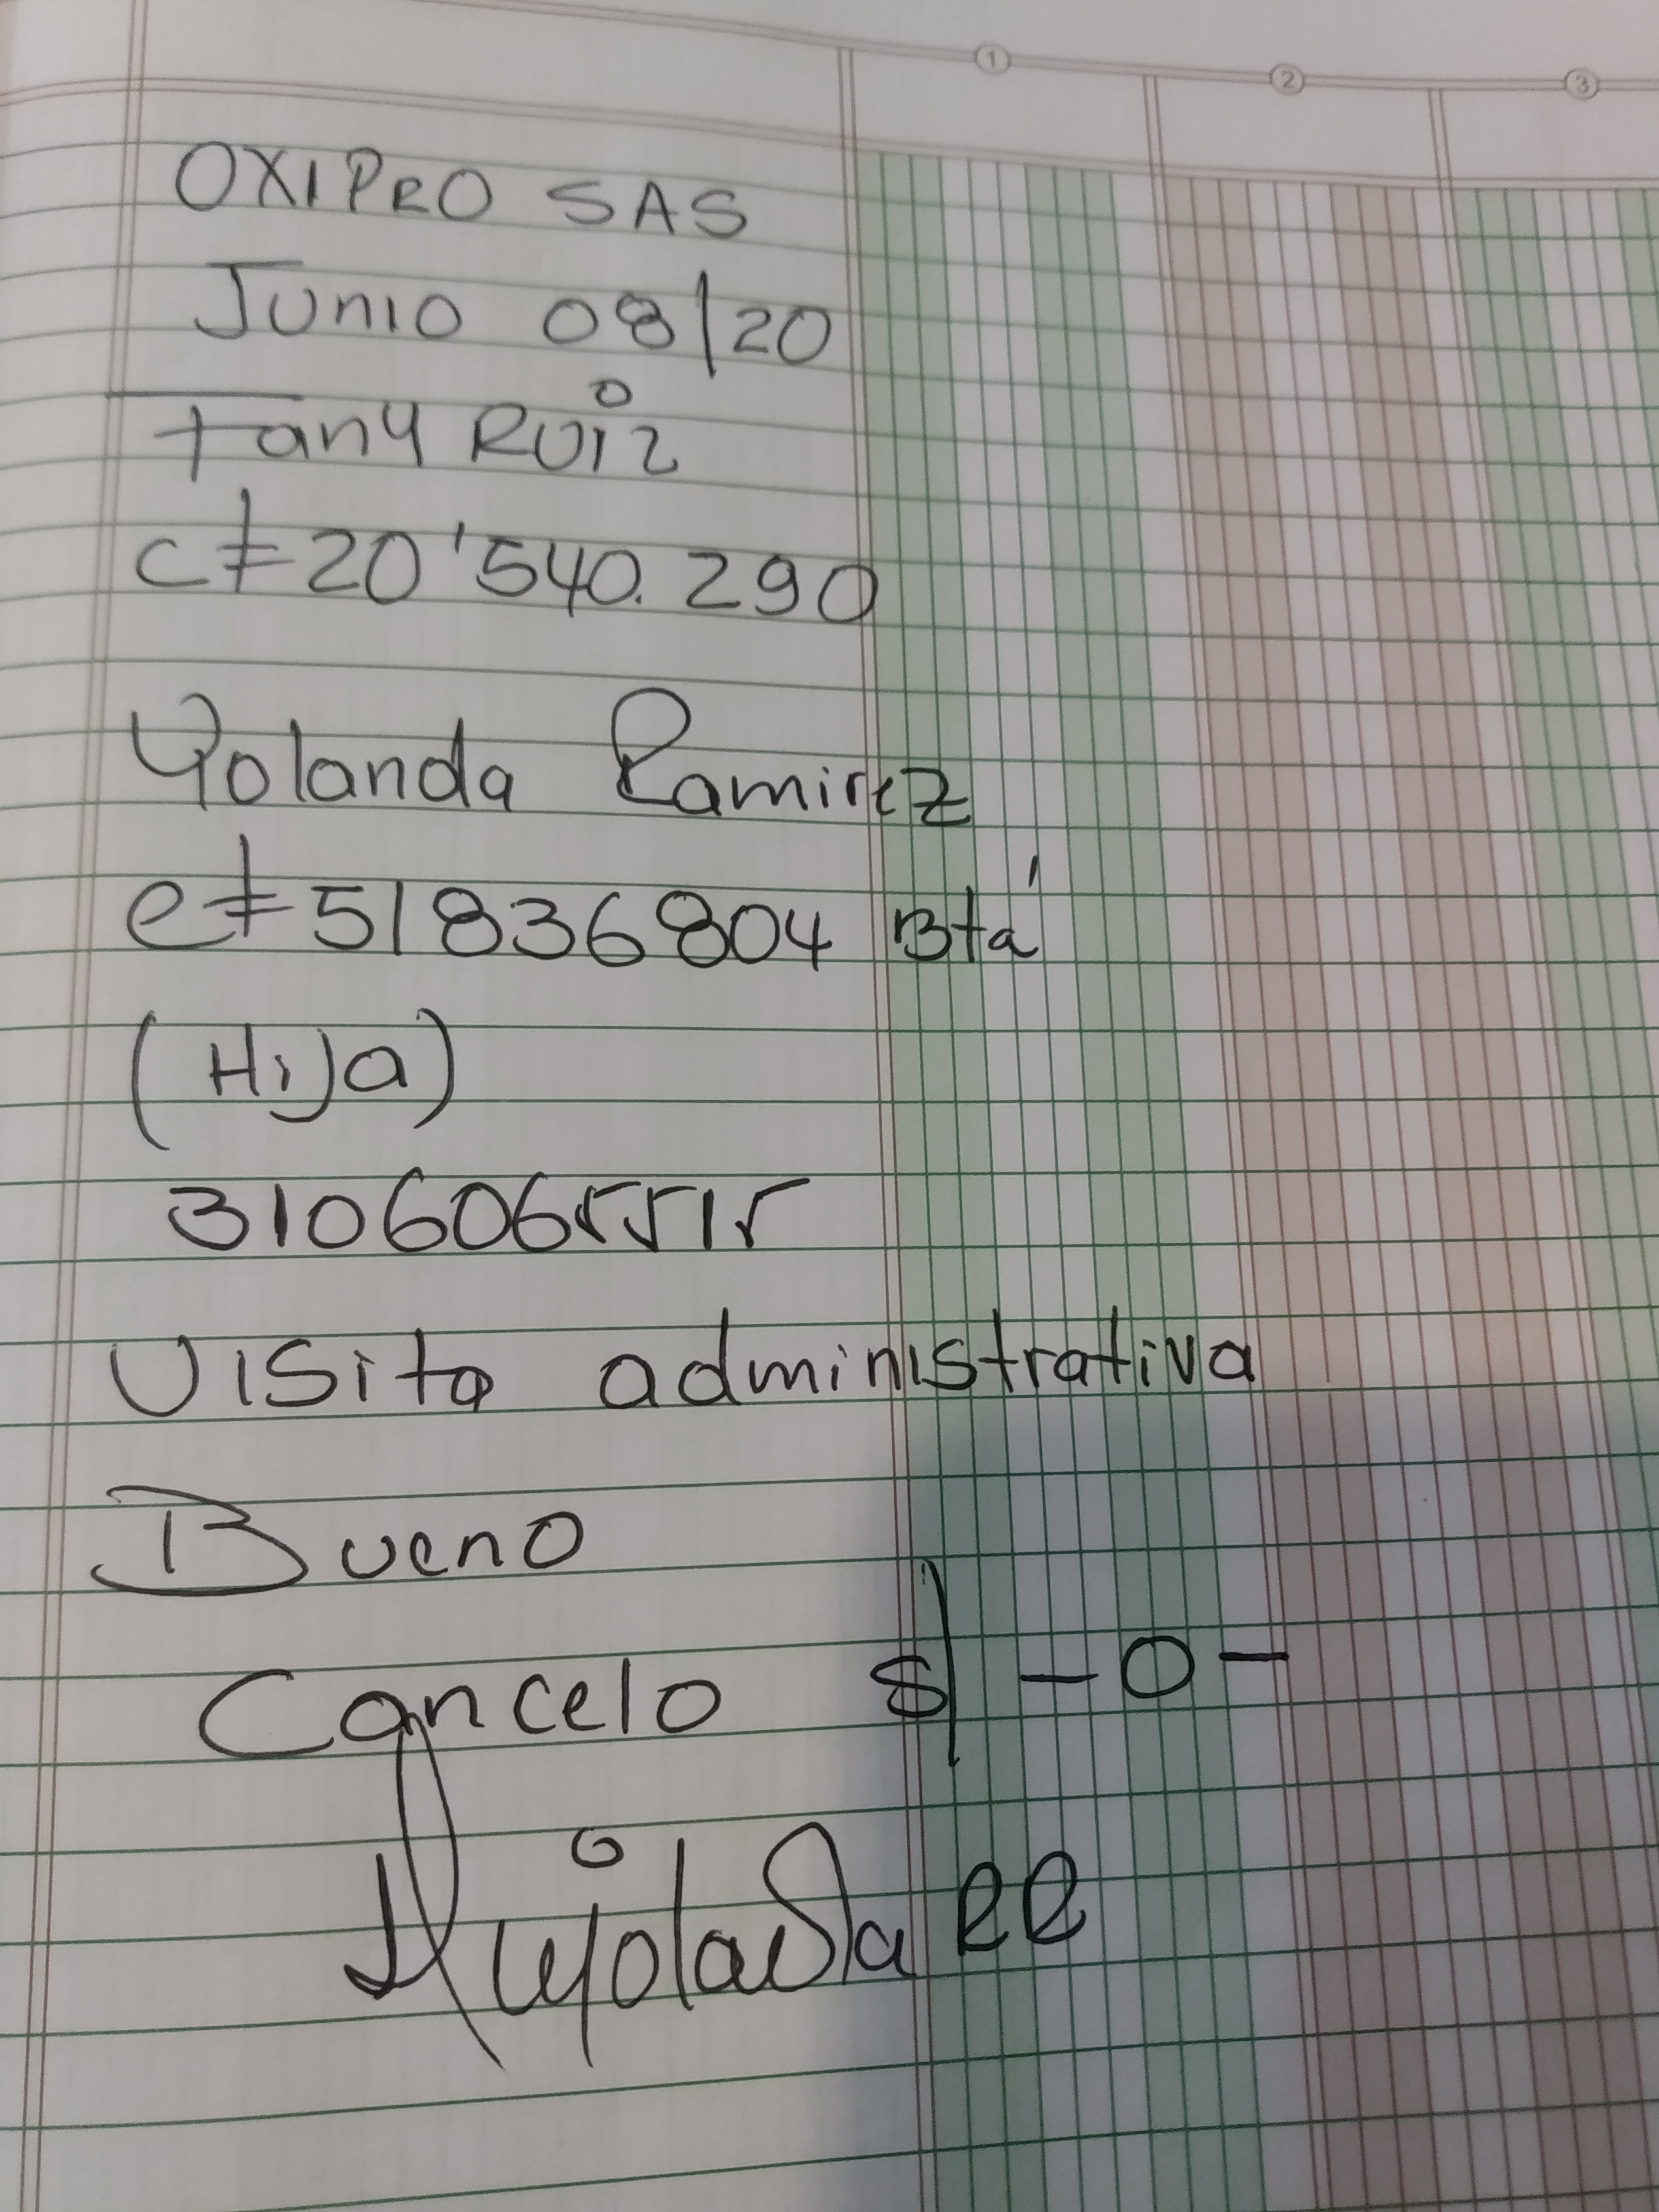 1 2 3
OXIPRO SAS
Junio 08/20
Fany Ruiz
c≠20'540.290
Yolanda Ramirez
c≠51836804 Btá
(Hija)
3106065515
Visita administrativa
Bueno
Cancelo $ -0-